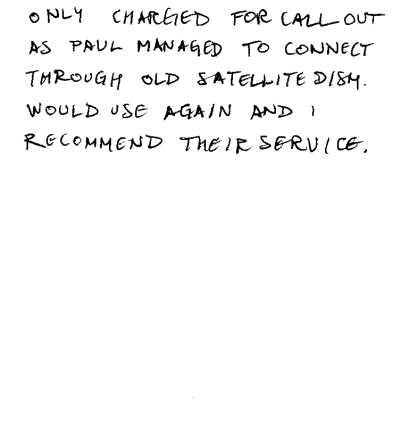 ONLY CHARGED FOR CALL OUT
AS PAUL MANAGED TO CONNECT
THROUGH OLD SATELLITE DISH.
WOULD USE AGAIN AND I
RECOMMEND THEIR SERVICE.